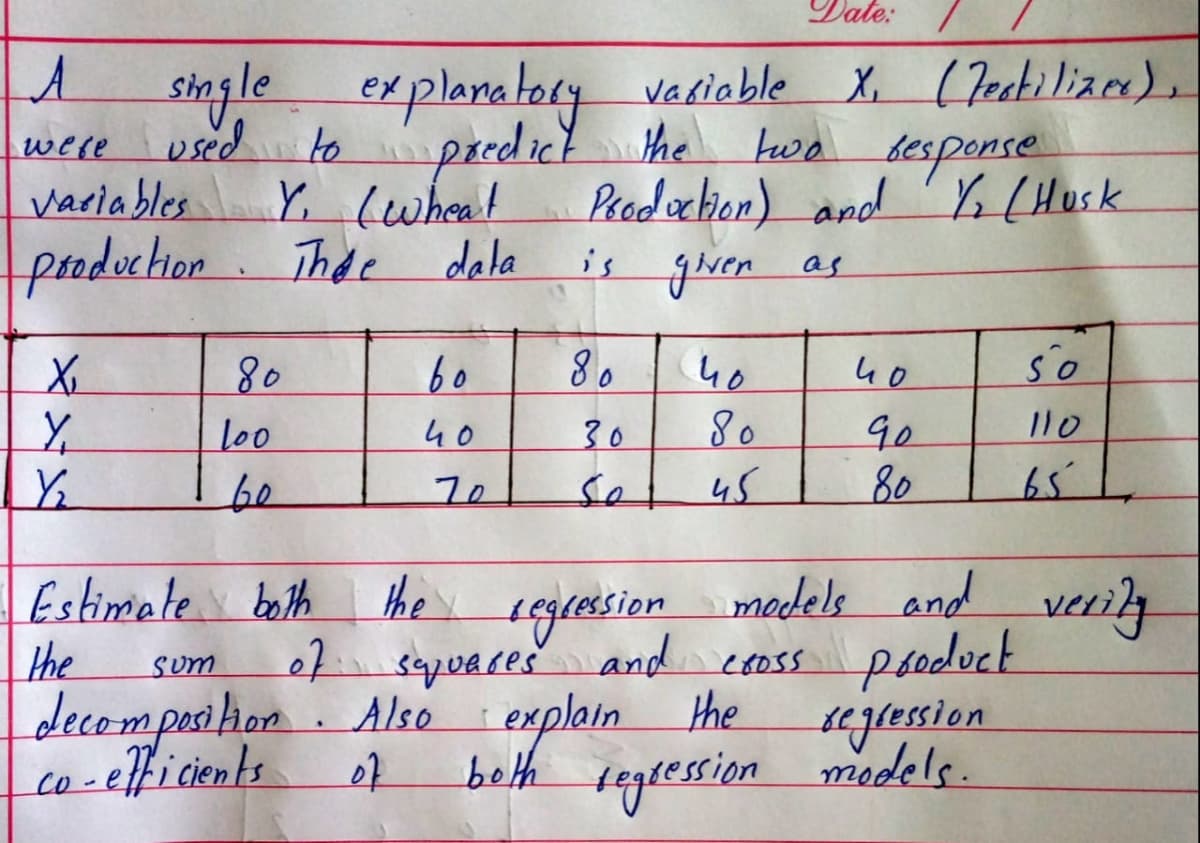 Date: / /
A single explanatory variable X₁ (Fertilizer),
were used to predict the two response
variables Y₁ (wheat Production) and Y₂ (Husk
production. The data is given as
X₁ 80 60 80 40 40 50
Y₁ 100 40 30 80 90 110
Y₂ 60 70 50 45 80 65
Estimate both the regression models and verify
the sum of squares and cross product
decomposition. Also explain the regression
co-efficients of both regression models.